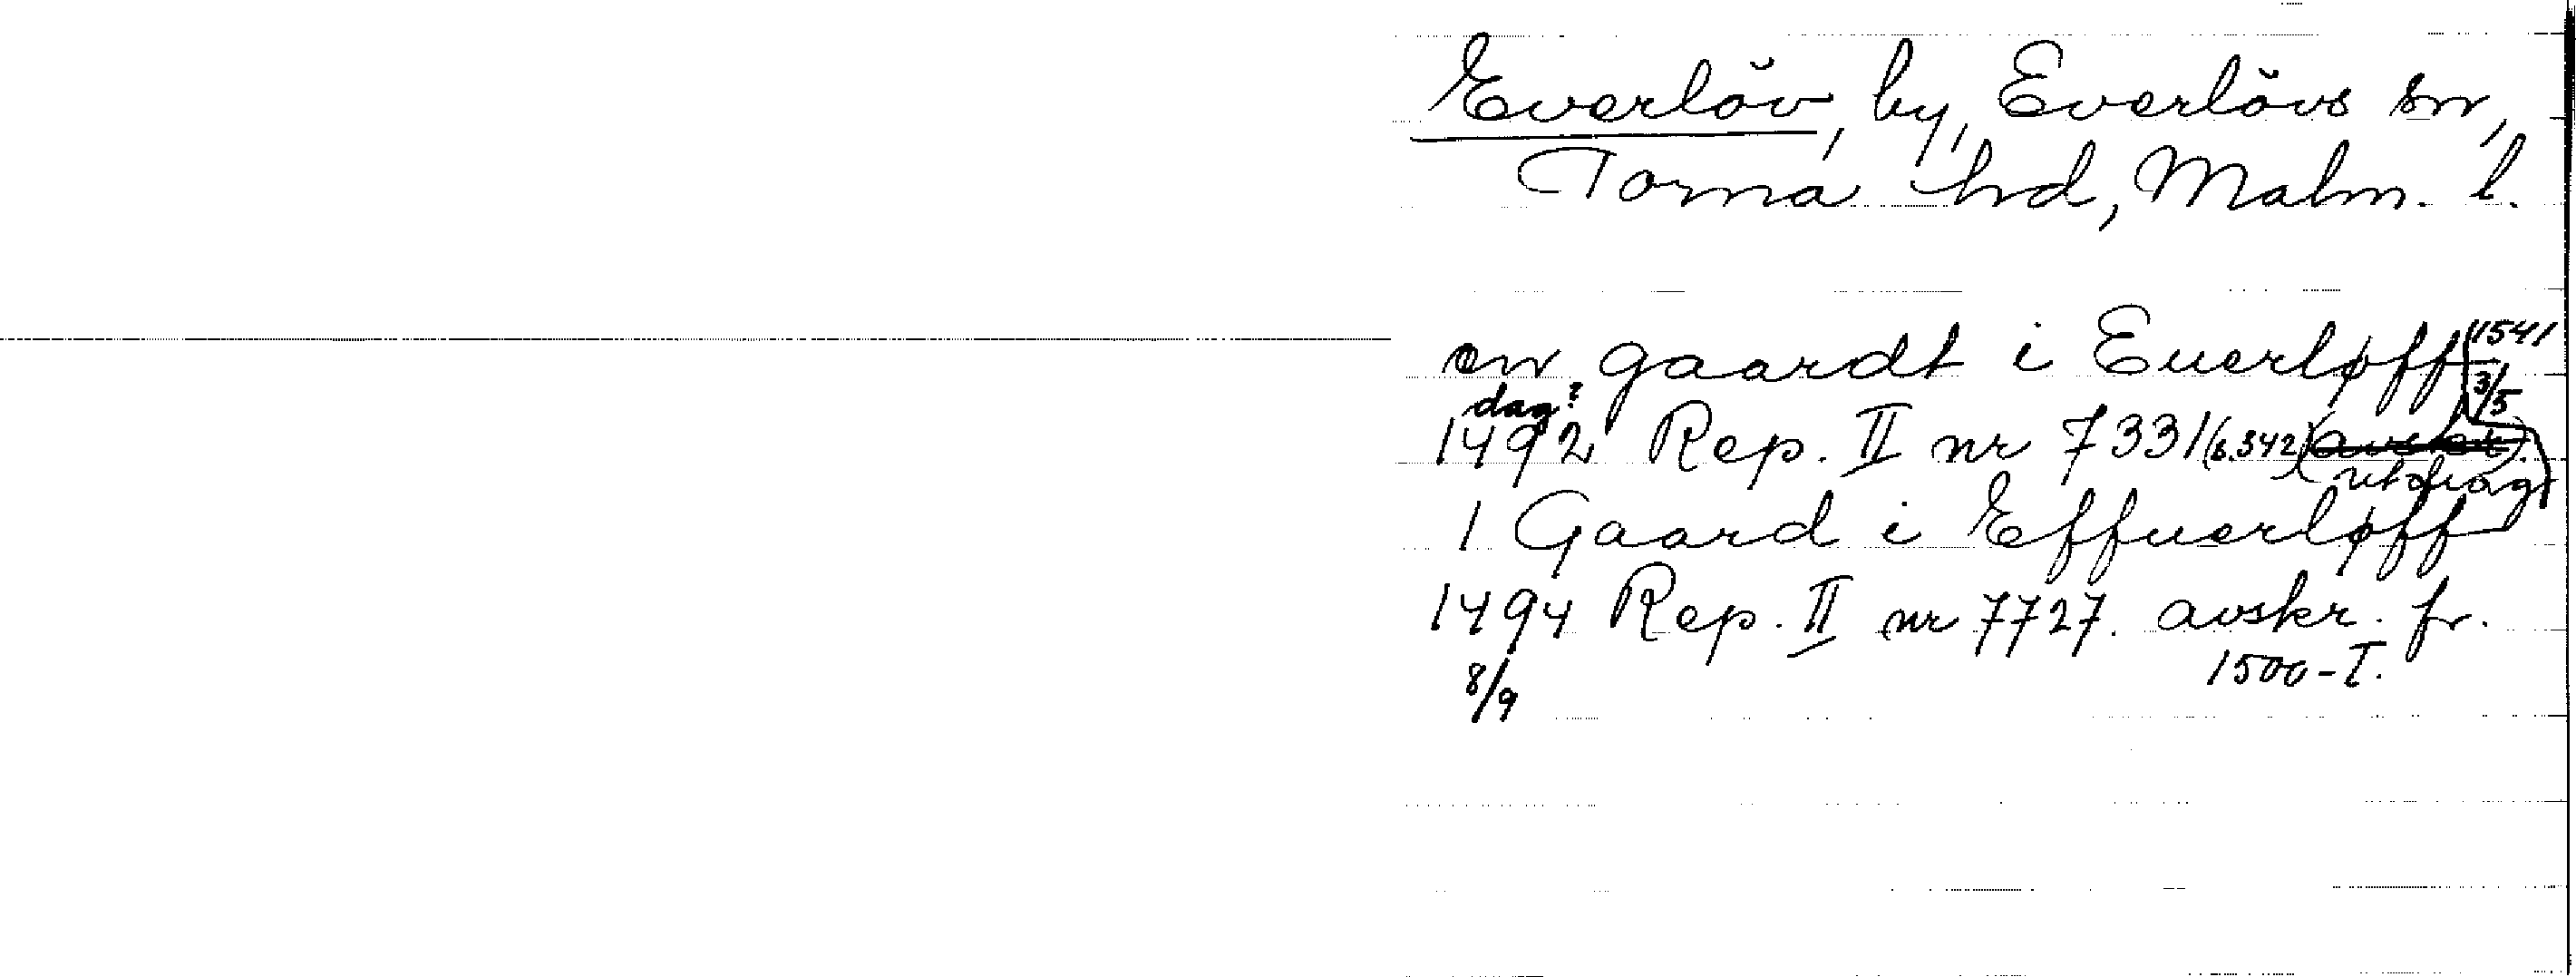 Everlöv, by, Everlövs sn,
Torna hd, Malm. l.
en gaardt i Euerløff 1541 3/5
dag?
1492 Rep. II nr 7331 (s. 342) (avskr.)
utdrag
1 Gaard i Effuerløff
1494 Rep. II nr 7727. avskr. fr.
8/9 1500-T.